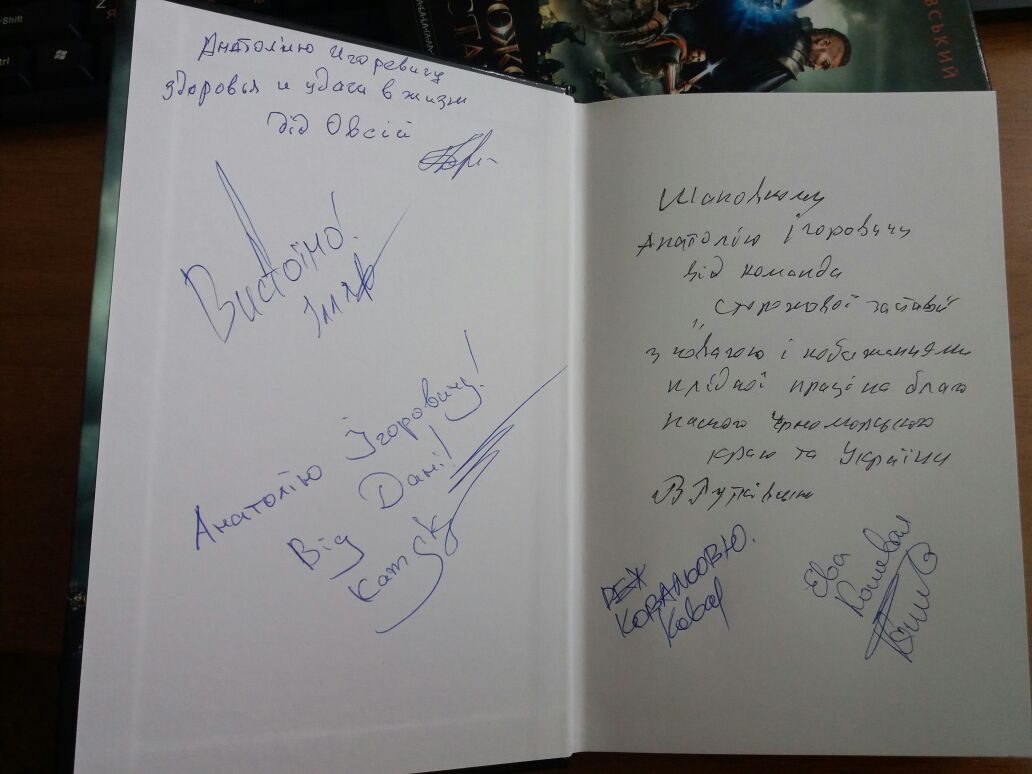 Анатолию Игоревичу
здоровья и удачи в жизни
дід Овсій
Вистоїмо!
Ілля
Анатолію Ігоровичу!
Від Дані!
Kamysk
ВСЬКИЙ
СТА
Shift
Ctrl
Я
Анатолію Ігоровичу
від команда
"Сторожової застави"
з повагою і побажаннями
плідної праці на благо
нашого Чорноморського
краю та України
В Рутківський
РЕЖ
КОВАЛЬОВ Ю.
Koval
Ева
Кошевая